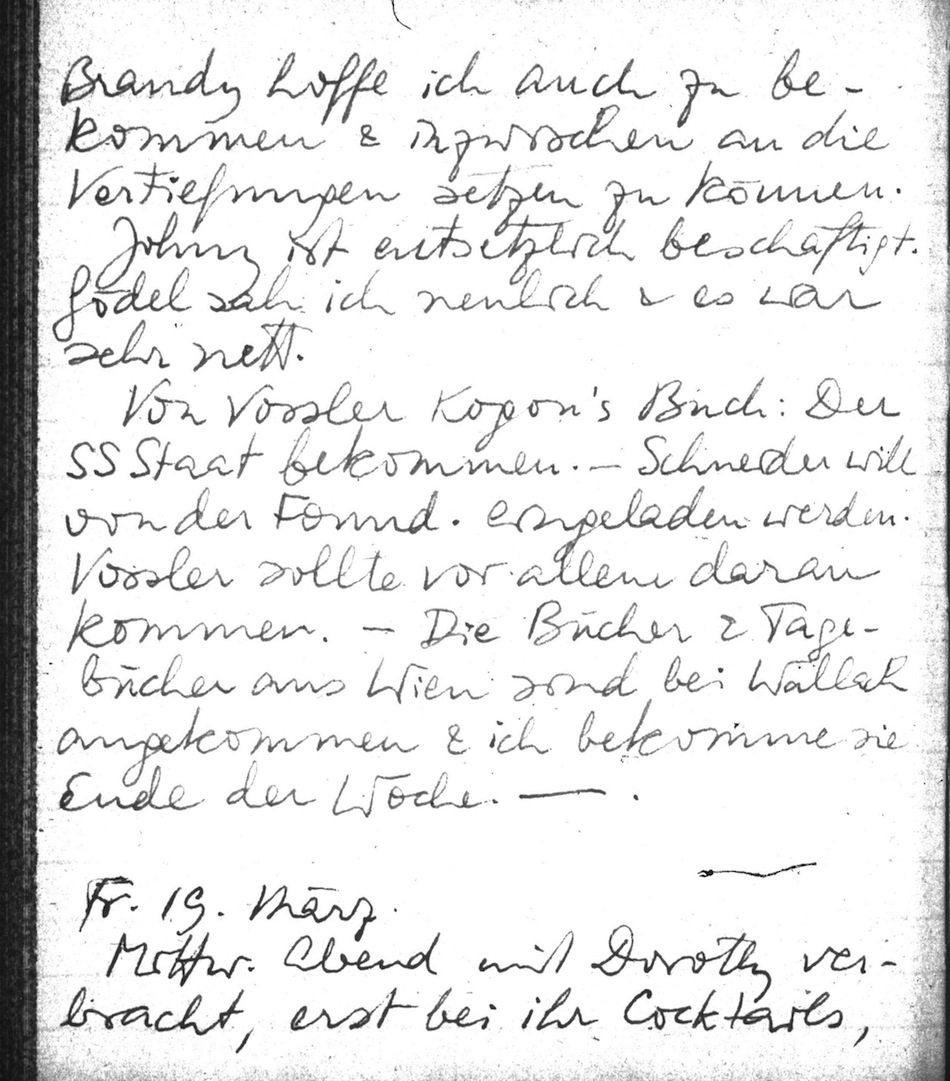 Brandy hoffe ich auch zu be-
kommen & inzwischen an die
Vertiefungen setzen zu können.
Johny ist entsetzlich beschäftigt.
Gödel sah ich neulich & es war
sehr nett.
Von Vossler Kogon's Buch: Der
SS Staat bekommen. — Schneider will
von der Found. eingeladen werden.
Vossler sollte vor allem daran
kommen. — Die Bücher & Tage-
bücher aus Wien sind bei Wallach
angekommen & ich bekomme sie
Ende der Woche. — .
Fr. 19. März.
Mittw. Abend mit Dorothy ver-
bracht, erst bei ihr Cocktails,